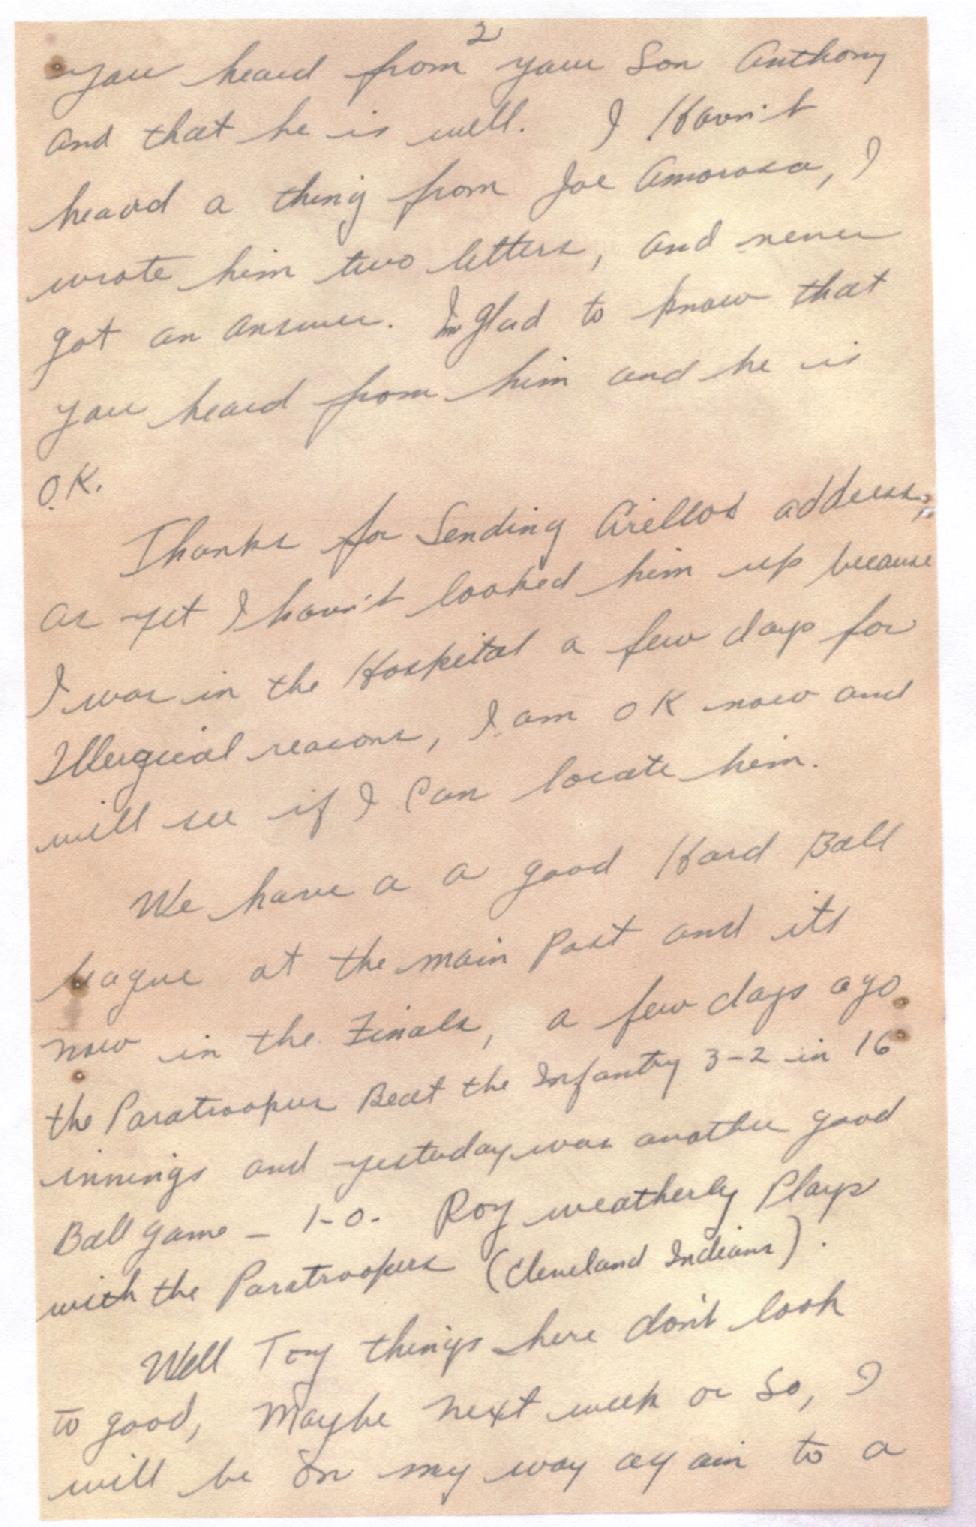 2
you heard from your Son Anthony
and that he is well. I Havn't
heard a thing from Joe Amorosa, I
wrote him two letters, and never
got an answer. Im glad to know that
you heard from him and he is
O.K.
Thanks for Sending address,
as yet I havn't looked him up because
I was in the Hospital a few days for
Illergical reasons, I am OK now and
will see if I Can locate him.
We have a a good Hard Ball
league at the main Post and its
now in the Finals, a few days ago
the Paratroopers Beat the Infantry 3-2 in 16
innings and yesterday was another good
Ball game - 1-0. Roy weatherly Plays
with the Paratroopers (Cleveland Indians).
Well Tony things here don't look
to good, Maybe next week or so, I
will be on my way again to a